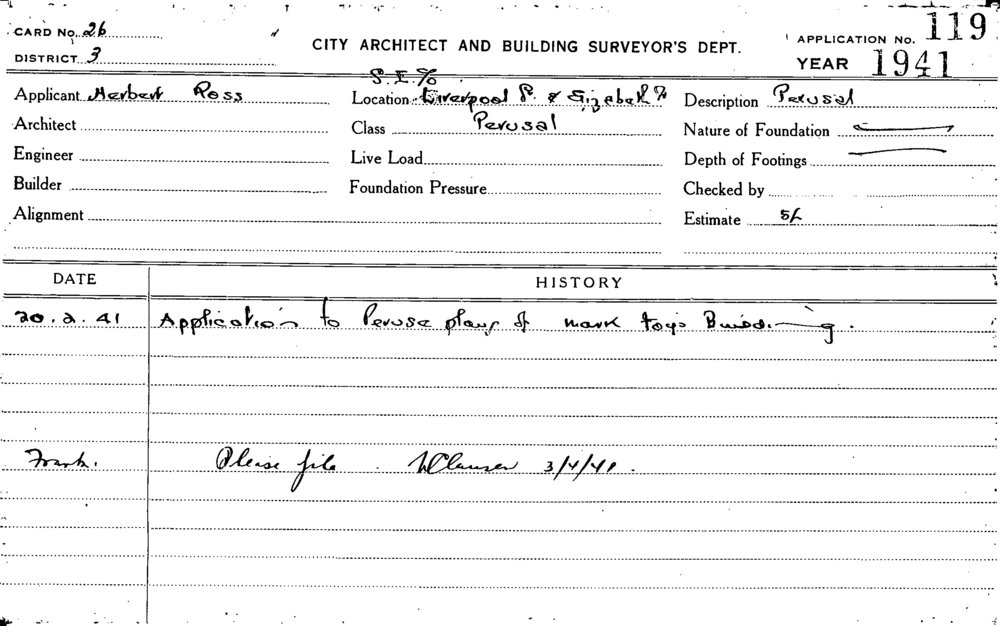 CARD No. 26
DISTRICT 3
CITY ARCHITECT AND BUILDING SURVEYOR'S DEPT.
APPLICATION No. 119
YEAR 1941
S.E. %
Applicant Herbert Ross
Location Liverpool St. & Elizabeth St
Description Perusal
Architect
Class Perusal
Nature of Foundation
Engineer
Live Load
Depth of Footings
Builder
Foundation Pressure
Checked by
Alignment
Estimate 5/-
DATE HISTORY
20.2.41 Application to Peruse plans of mark toys Building.
Frank. Please file 3/4/41.